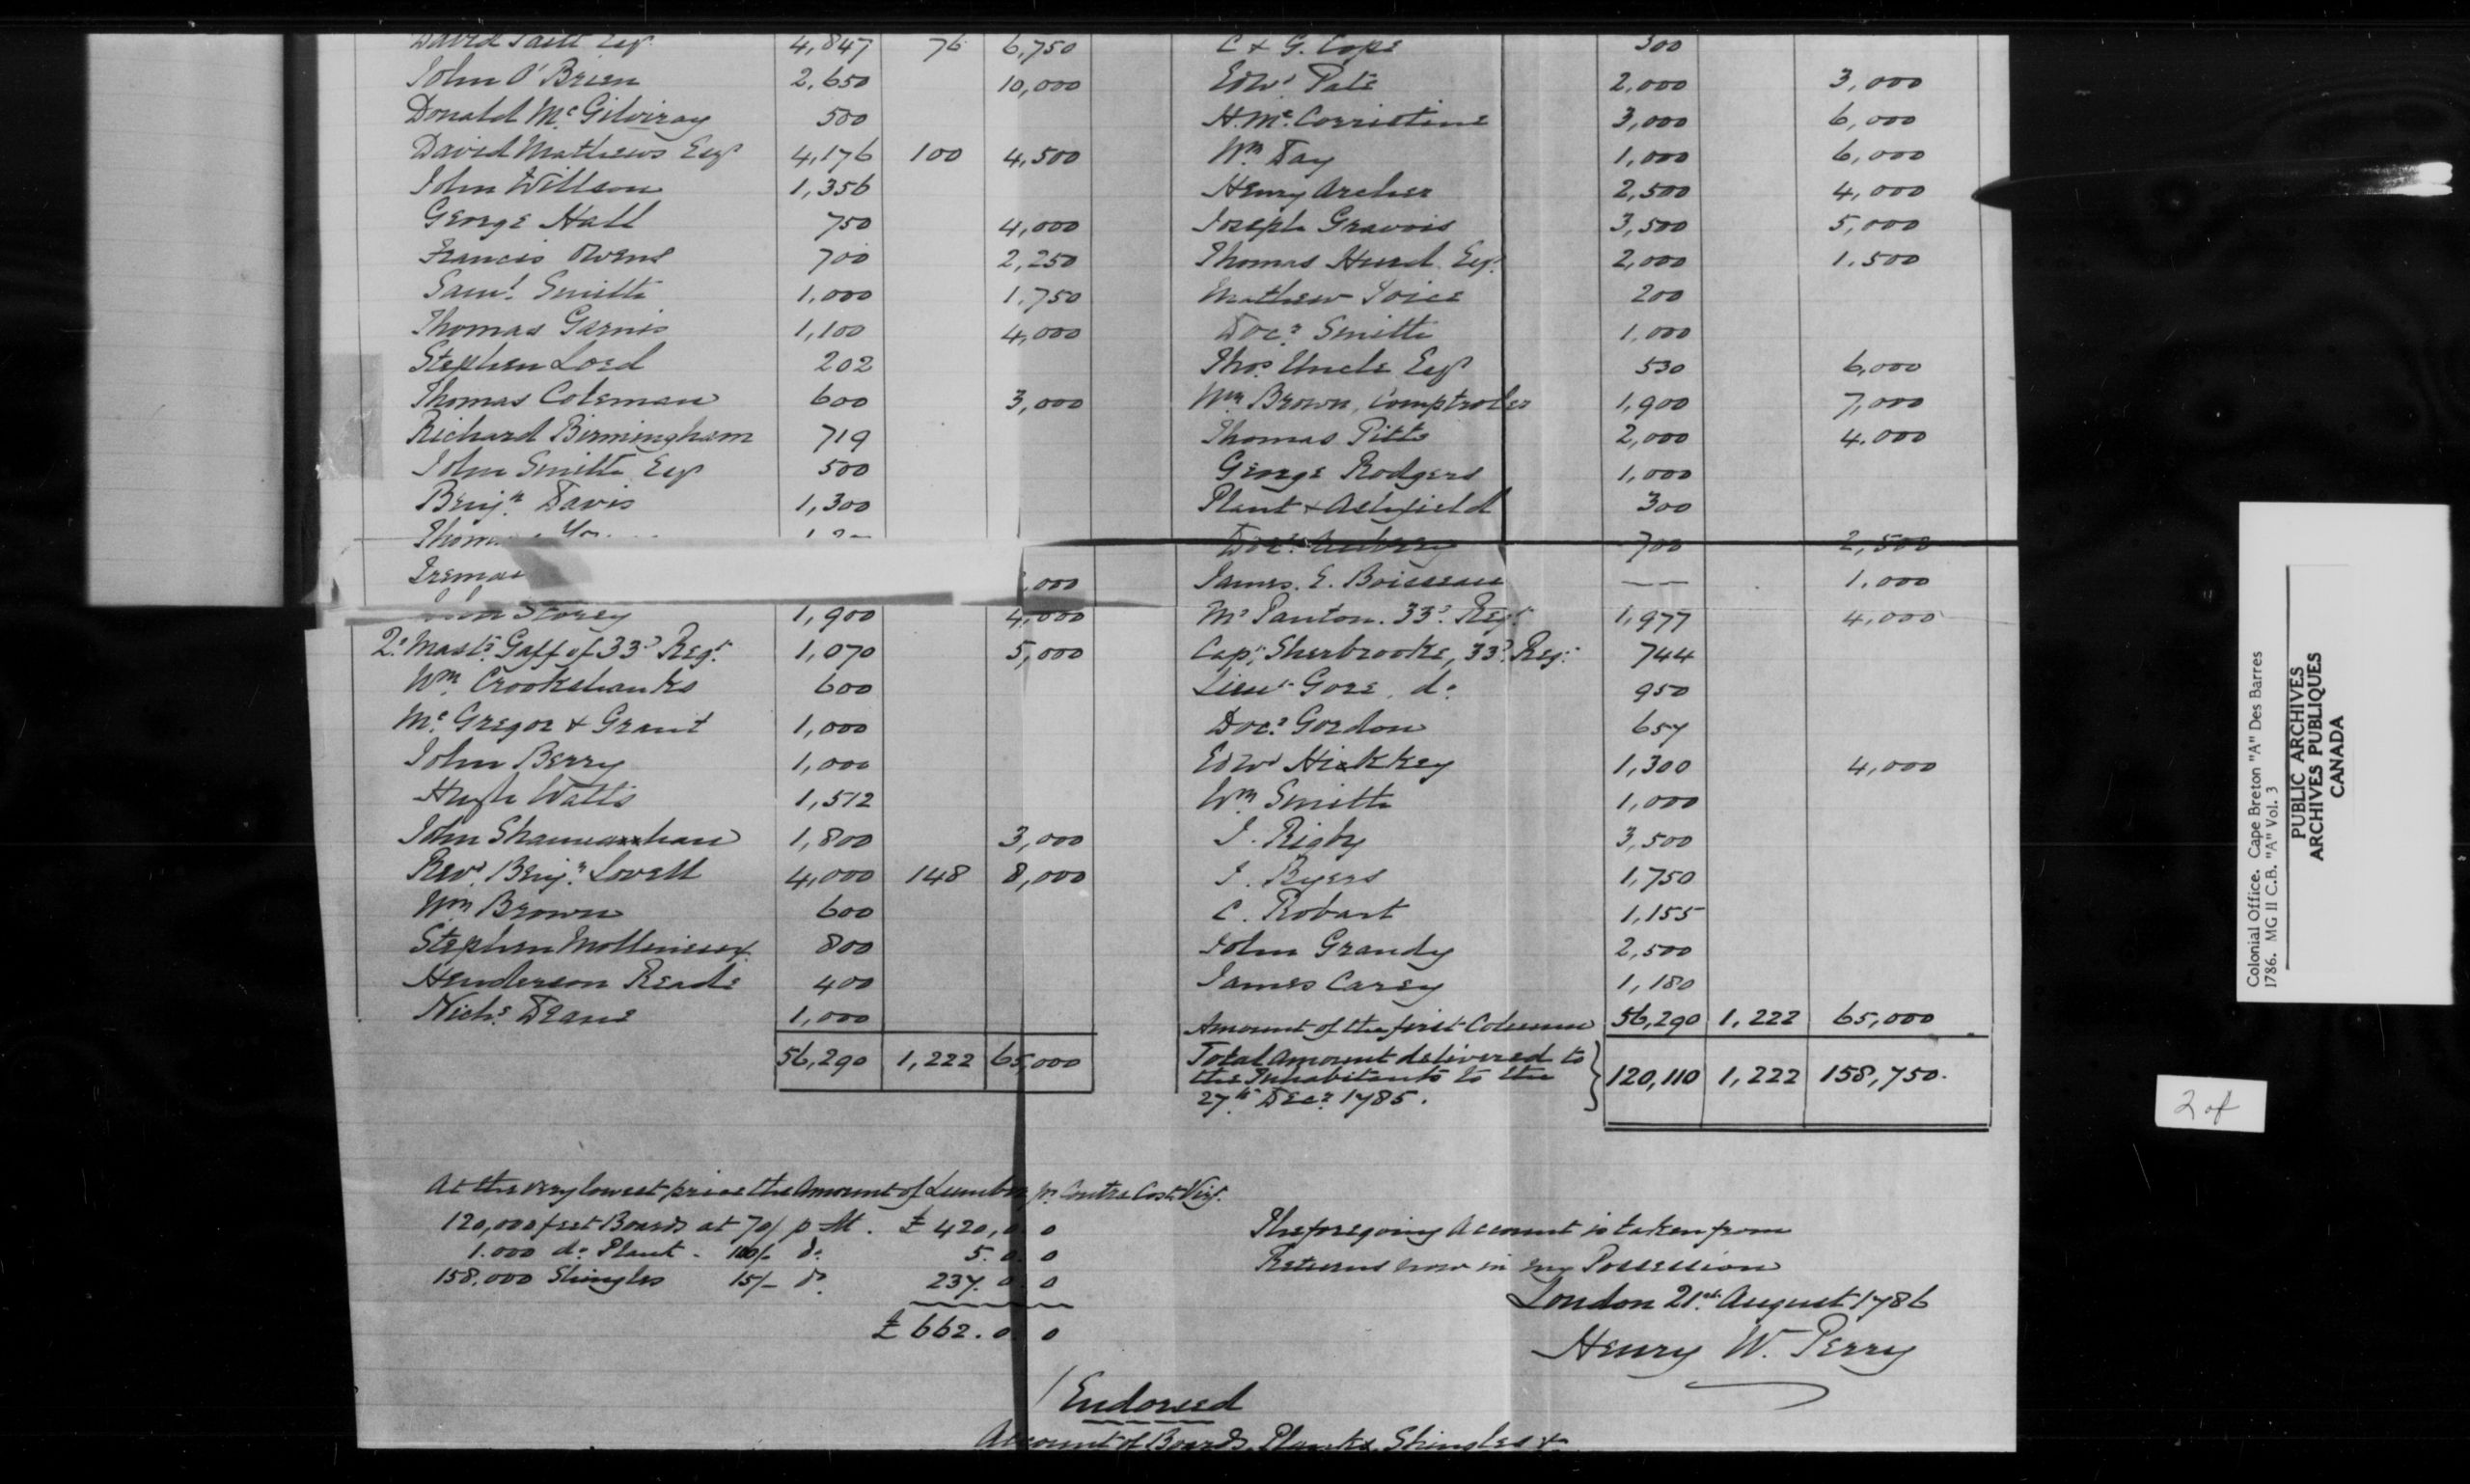 David Taitt Esqr. 4,847 76 6,750
John O'Brien 2,650 10,000
Donald Mc Gilviray 500
David Mathews Esqr 4,176 100 4,500
John Willson 1,356
George Hall 750 4,000
Francis Owens 700 2,250
Saml. Smith 1,000 1,750
Thomas Garnis 1,100 4,000
Stephen Lord 202
Thomas Coleman 600 3,000
Richard Birmingham 719
John Smith Esqr 500
Benjn. Davis 1,300
,000
Storey 1,900 4,000
Qr. Mastr. Gaff of 33d Regt. 1,070 5,000
Wm. Crookshanks 600
Mc Gregor & Grant 1,000
John Berry 1,000
Hugh Watts 1,512
John 1,800 3,000
Revd. Benjn. Lovell 4,000 148 8,000
Wm Brown 600
Stephen Mollineux 800
Henderson Reade 400
Nichs. Deane 1,000
56,290 1,222 65,000
C & G. Cope 300
Edwd Pate 2,000 3,000
H. Mc. Corristine 3,000 6,000
Wm Day 1,000 6,000
Henry Archer 2,500 4,000
Joseph Gravois 3,500 5,000
Thomas Hurd Esqr. 2,000 1.500
Mathew Joice 200
Docr. Smith 1,000
Thos. Uncle Esqr 530 6,000
Wm Brown, Comptroler 1,900 7,000
Thomas Pitts 2,000 4.000
George Rodgers 1,000
Plant & Ashfield 300
Docr. 700 2,500
James. E. Boisseau —— 1.000
Mr Panton. 33d. Regt. 1,977 4,000
Capt. Sherbrooke, 33d. Regt. 744
Lieut. Gore, do. 950
Docr. Gordon 657
Edwd Hickkey 1,300 4,000
Wm Smith 1,000
J. Rigby 3,500
J. Byers 1,750
C. Robart 1,155
John Grandy 2,500
James Carey 1,180
Amount of the first Column 56,290 1,222 65,000
Total amount delivered to
the Inhabitants to the 120,110 1,222 158,750.
27th Decr 1785.
At the very lowest price the Amount of Lumber pr. Contra Cost Vizt.
120,000 feet Boards at 70/ p M. £ 420, 0. 0
1.000 do. Plank - 100/- do. 5. 0. 0
158,000 Shingles 15/- do. 237. 0. 0
£ 662. 0. 0
The foregoing Account is taken from
Returns now in my Possession
London 21st. August 1786
Henry W. Perry
/ Endorsed
Account of Boards, Planks, Shingles &
Colonial Office. Cape Breton "A" Des Barres
1786. MG II C.B. "A" Vol. 3
PUBLIC ARCHIVES
ARCHIVES PUBLIQUES
CANADA
2 of